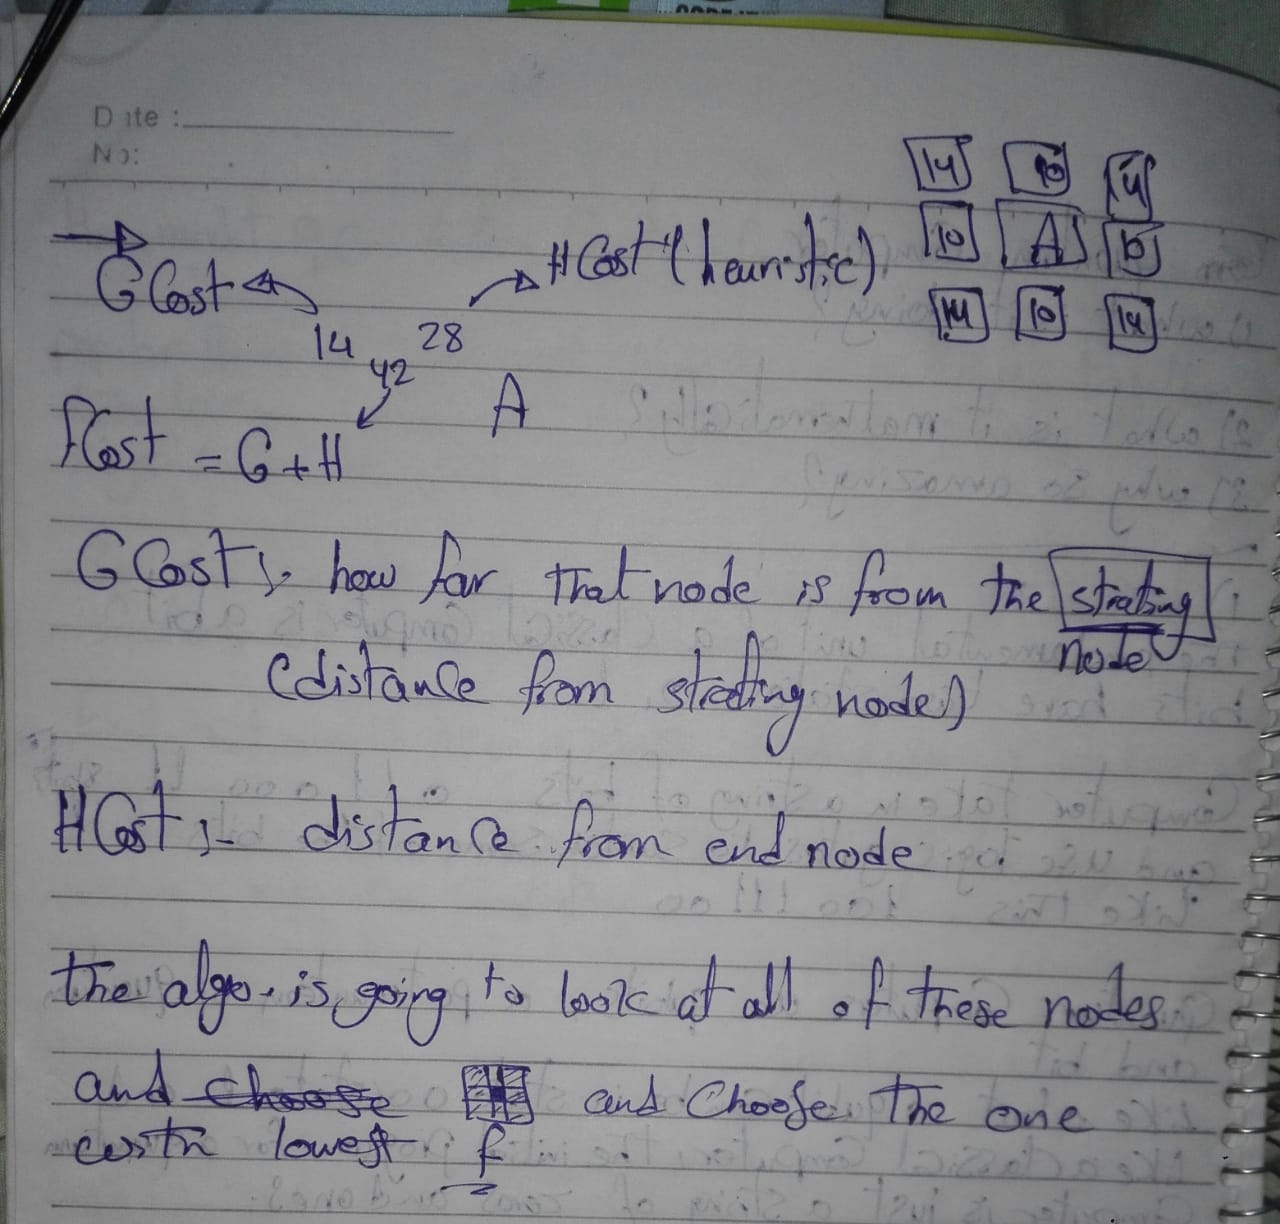 Date :
No:
14 10 14
10 A 10
14 10 14
G Cost
H Cost (heuristic)
14 28
42
A
f Cost = G + H
G Cost :- how far that node is from the strating
node
(distance from strating node)
H Cost :- distance from end node
the algo. is going to look at all of these nodes
and choose and Choose the one
with lowest f